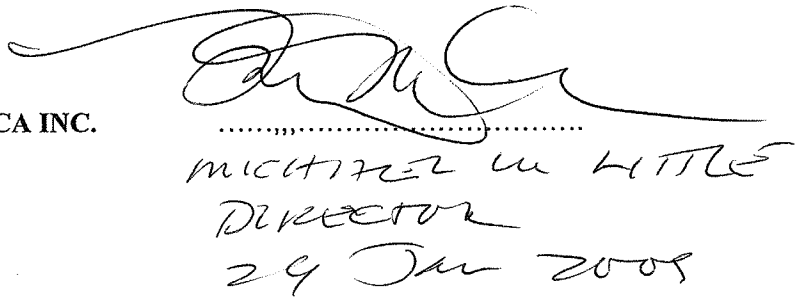 CA INC. ..................................................
MICHAEL W LITTLE
DIRECTOR
29 Jan 2009